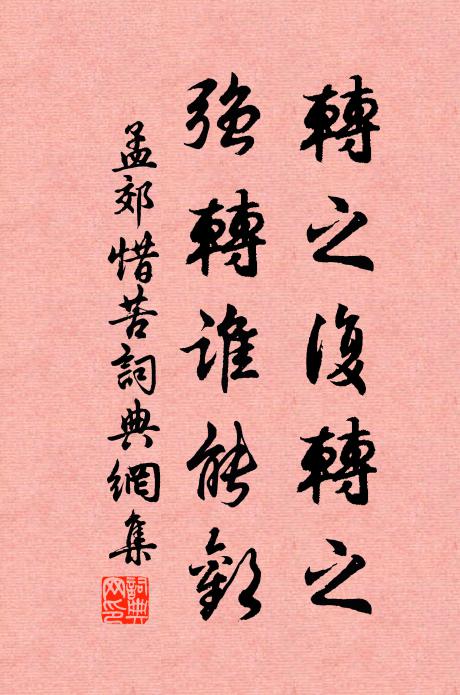 轉之復轉之
強轉誰能歡
孟郊惜苦詞典網集
詞典
网印